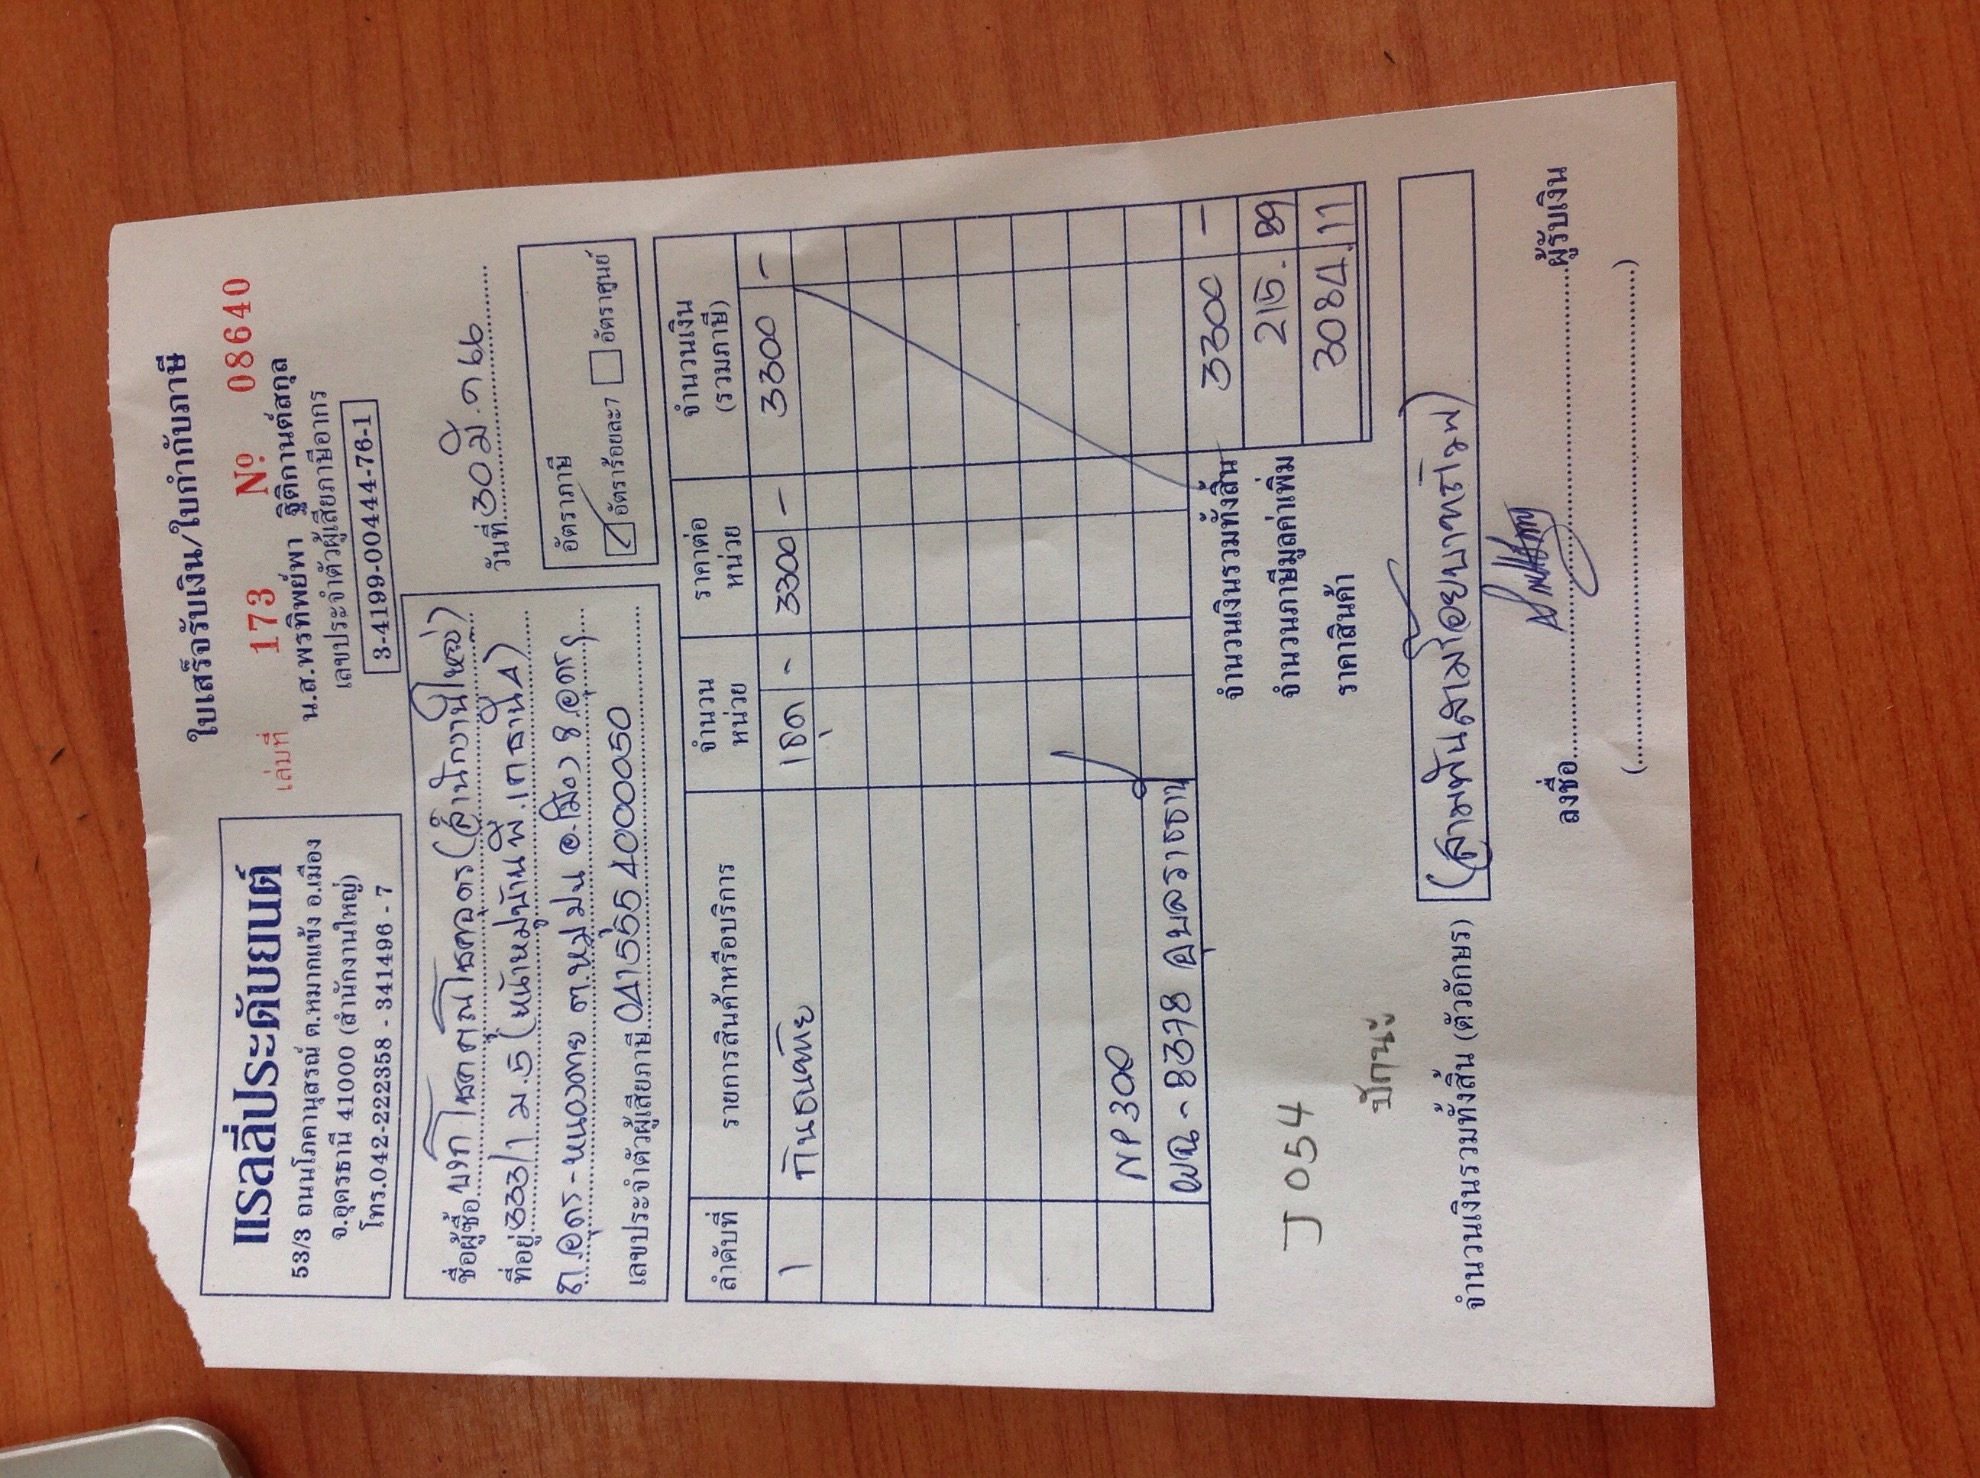 ใบเสร็จรับเงิน/ใบกำกับภาษี
แรลลี่ประดับยนต์
53/3 ถนนโภคานุสรณ์ ต.หมากแข้ง อ.เมือง
จ.อุดรธานี 41000 (สำนักงานใหญ่)
โทร.042-222358 - 341496 - 7
เล่มที่ 173 Nº 08640
น.ส.พรทิพย์พา ฐิติกานต์สกุล
เลขประจำตัวผู้เสียภาษีอากร
3-4199-00444-76-1
วันที่ 30 มี.ค 66
ชื่อผู้ซื้อ บจก โชคคูณโชคอุดร (สำนักงานใหญ่)
ที่อยู่ 333/1 ม.5 (หน้าหมู่บ้านพี.เกธานี A)
ถ.อุดร-หนองคาย ต.หมูม่น อ.เมือง จ.อุดรฯ
เลขประจำตัวผู้เสียภาษี 0415554000050
อัตราภาษี
อัตราร้อยละ7 อัตราศูนย์
ลำดับที่ รายการสินค้าหรือบริการ จำนวนหน่วย ราคาต่อหน่วย จำนวนเงิน (รวมภาษี)
1 1 ชุด - 3300 - 3300 -
NP300
ผฉ - 8378 อุบลราชธานี
จำนวนเงินรวมทั้งสิ้น 3300 -
จำนวนภาษีมูลค่าเพิ่ม 215. 89
ราคาสินค้า 3084. 11
J 054
จำนวนเงินรวมทั้งสิ้น (ตัวอักษร) (สามพันสามร้อยบาทถ้วน)
ลงชื่อ ผู้รับเงิน
(....................)